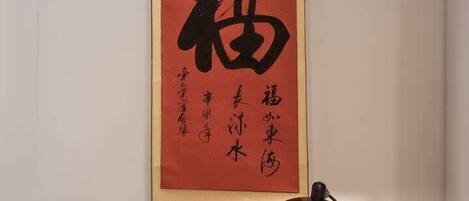 福
福如東海
長流水
辛卯年